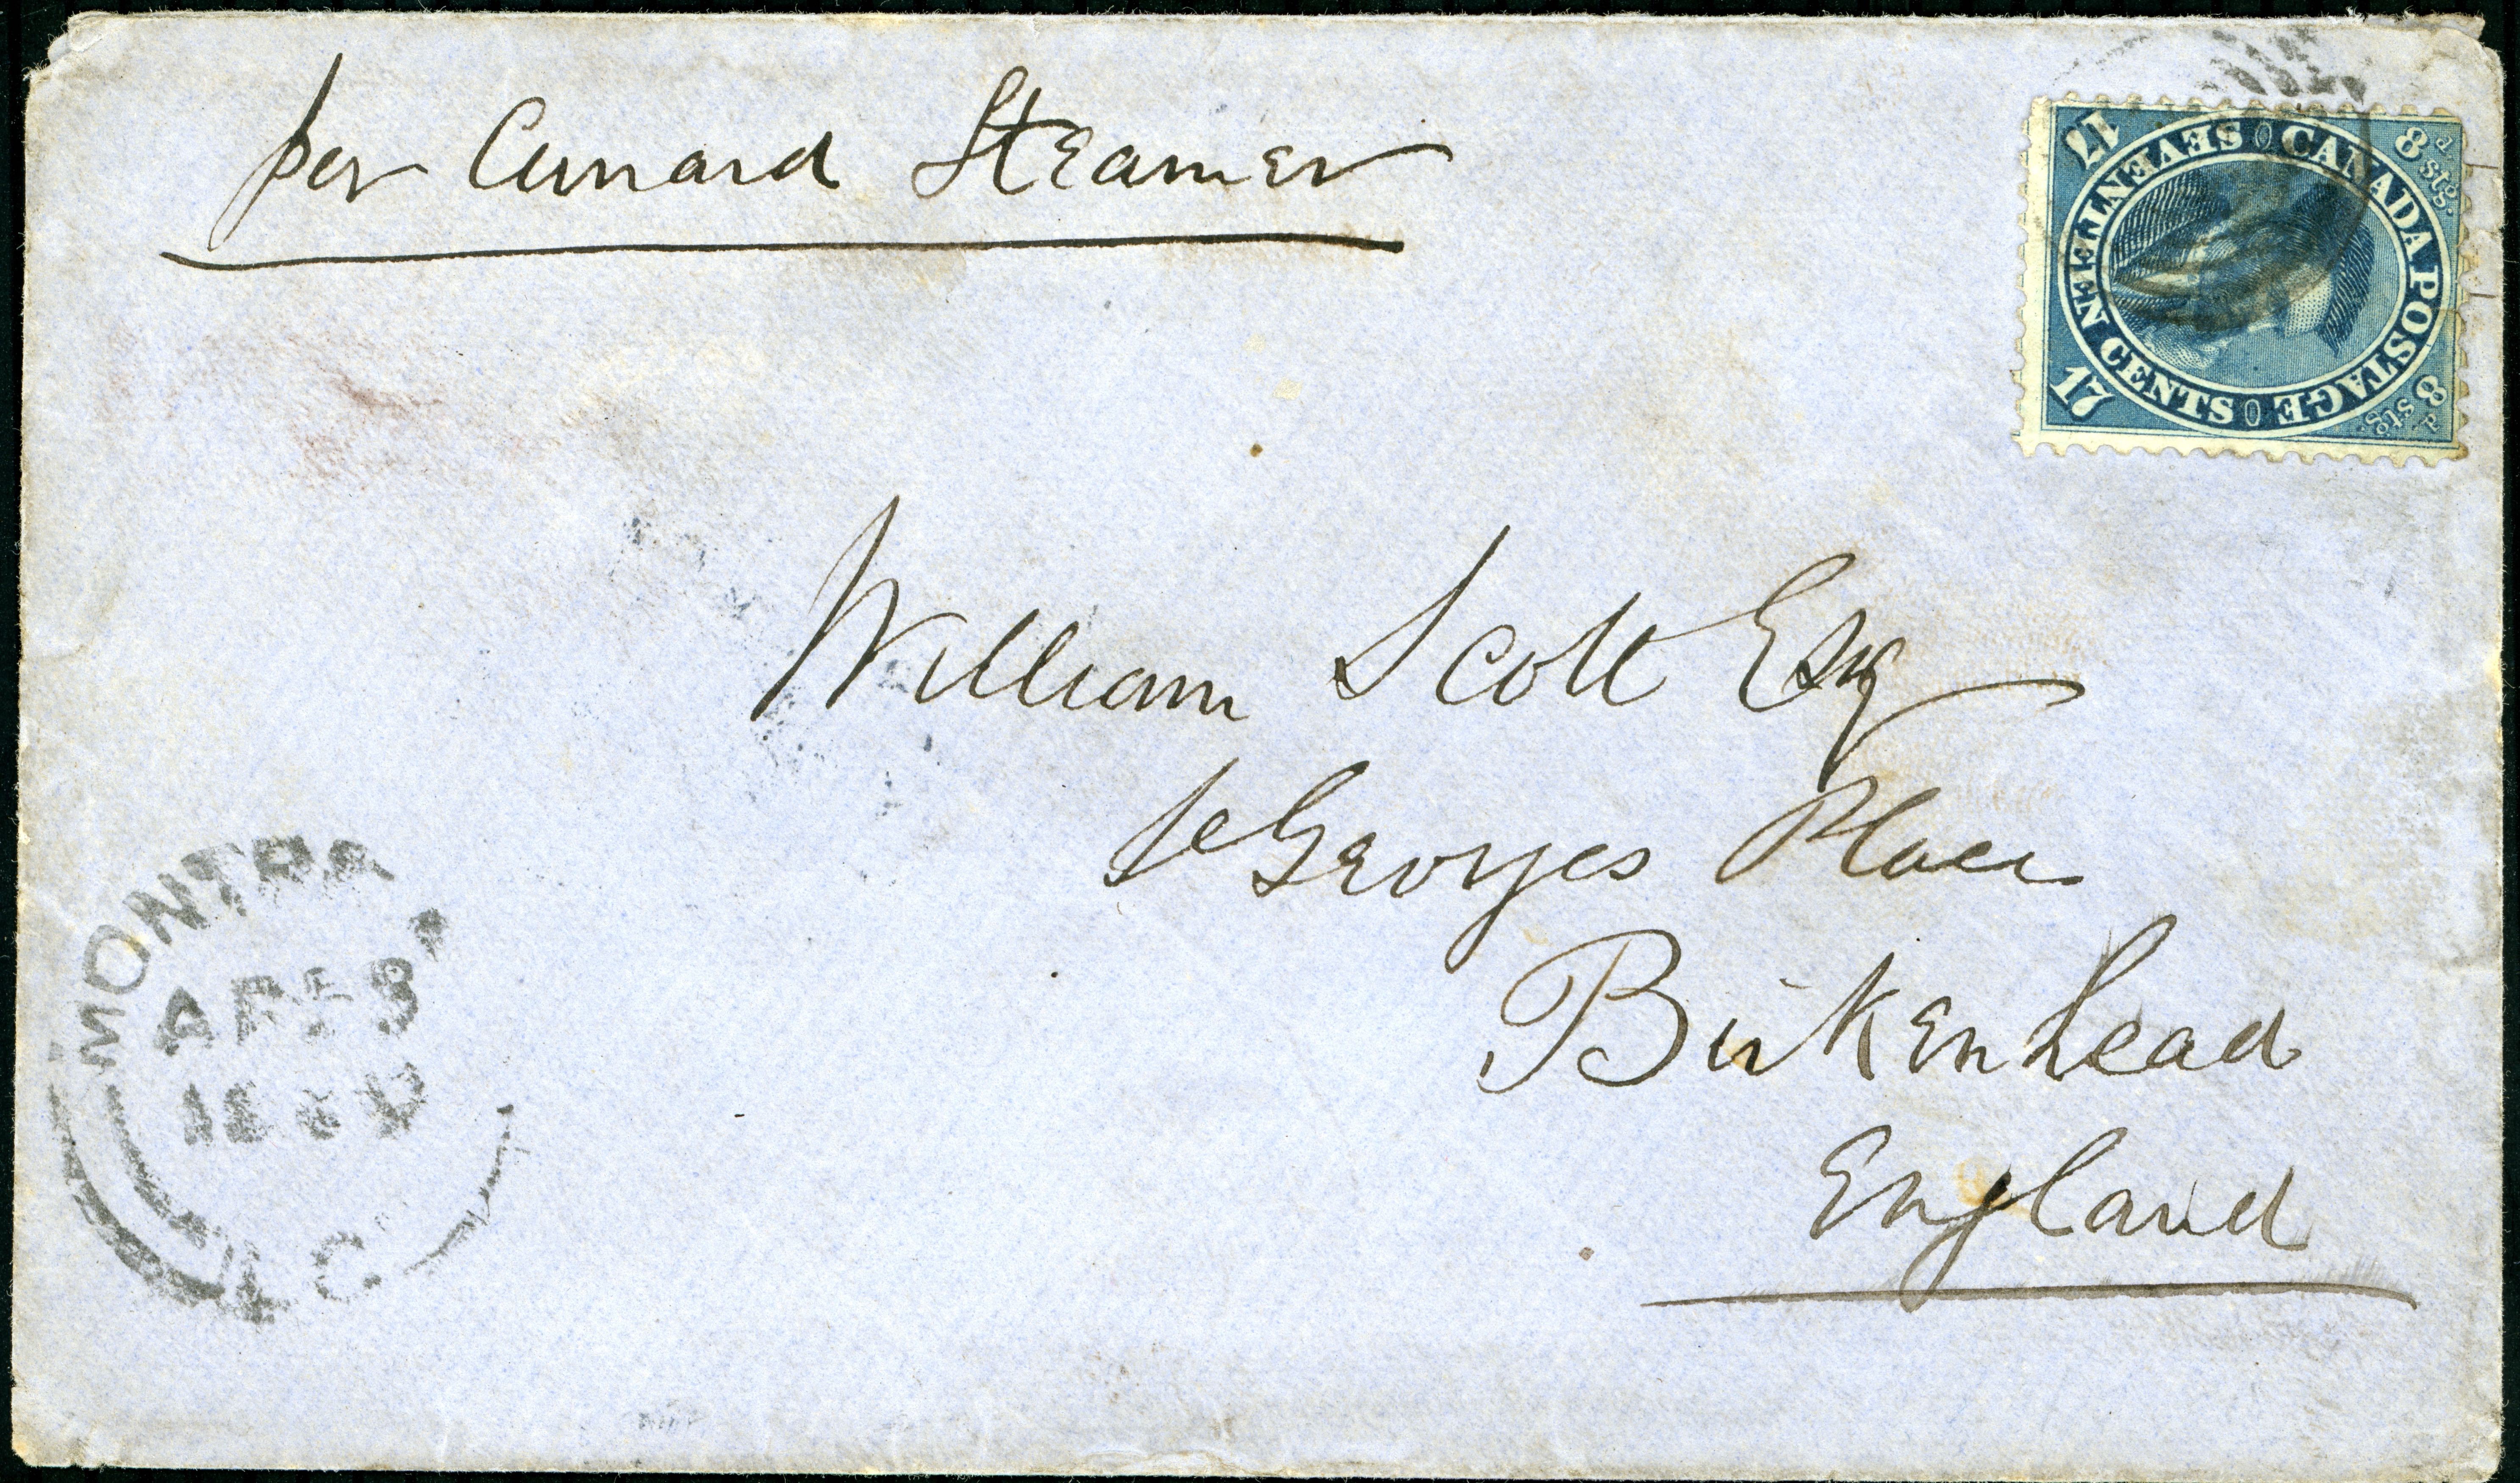 per Cunard Steamer
CANADA POSTAGE
SEVENTEEN CENTS
17
17
8d stg.
8d stg.
William Scott Esq
St Georges Place
Birkenhead
England
MONTRA
AP 8
C